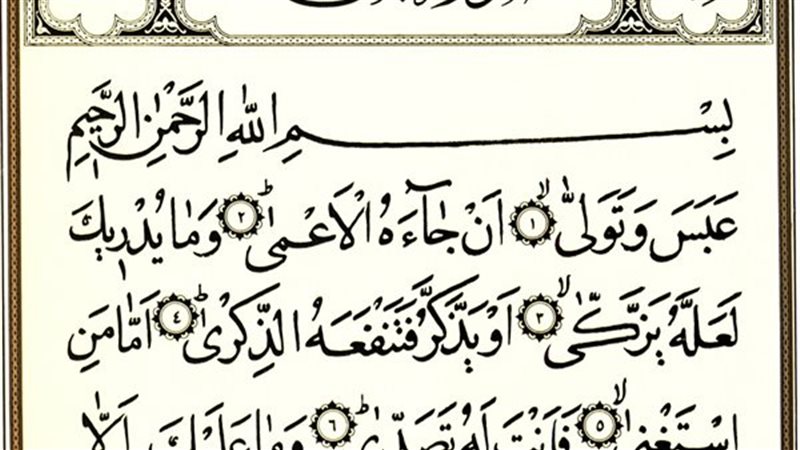 بِسْمِ اللّٰهِ الرَّحْمٰنِ الرَّحٖيمِ
عَبَسَ وَتَوَلّٰىۙ ﴿١﴾ اَنْ جَٓاءَهُ الْاَعْمٰىۜ ﴿٢﴾ وَمَا يُدْرٖيكَ
لَعَلَّهُ يَزَّكّٰىۙ ﴿٣﴾ اَوْ يَذَّكَّرُ فَتَنْفَعَهُ الذِّكْرٰىۜ ﴿٤﴾ اَمَّا مَنِ
اسْتَغْنٰىۙ ﴿٥﴾ فَاَنْتَ لَهُ تَصَدّٰىۜ ﴿٦﴾ وَمَا عَلَيْكَ اَلَّا